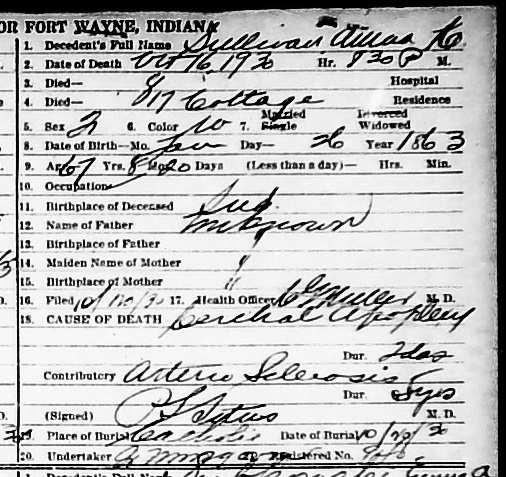 OR FORT WAYNE, INDIANA
1. Decedent's Full Name Sullivan Anna K.
2. Date of Death Oct 16, 1930 Hr. 8 30 P M.
3. Died— Hospital
4. Died— 817 Cottage Residence
Married Divorced
5. Sex F 6. Color W 7. Single Widowed
8. Date of Birth—Mo. Day— 26 Year 1863
9. Age 67 Yrs. 8 Mo. 20 Days (Less than a day)— Hrs. Min.
10. Occupation
11. Birthplace of Deceased Ind.
12. Name of Father Unknown
13. Birthplace of Father "
14. Maiden Name of Mother "
15. Birthplace of Mother "
16. Filed 10/20/30 17. Health Officer M. D.
18. CAUSE OF DEATH Cerebral Apoplexy
Dur. 2 das
Contributory Arterio Sclerosis
Dur. 5 yrs
(Signed) M. D.
19. Place of Burial Catholic Date of Burial 10/20/30
20. Undertaker Registered No.
1. Decedent's Full Name